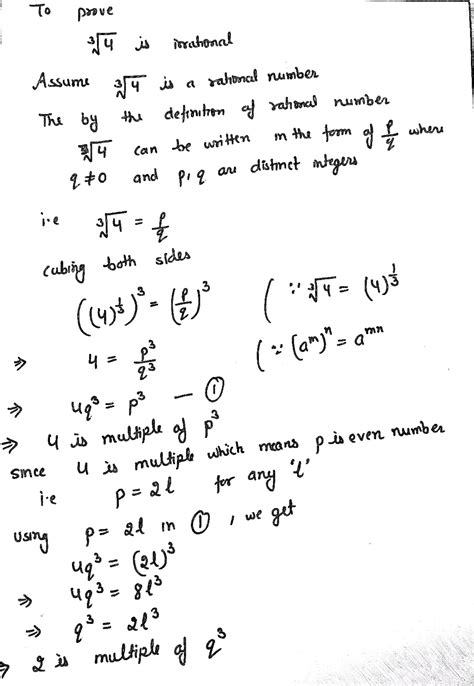 To prove
∛4 is irrational
Assume ∛4 is a rational number
The by the definition of rational number
∛4 can be written in the form of p/q where
q ≠ 0 and p, q are distinct integers
i.e ∛4 = p/q
cubing both sides
((4)^(1/3))^3 = (p/q)^3 (∵ ∛4 = (4)^(1/3)
⇒ 4 = p^3/q^3 (∵ (a^m)^n = a^mn
⇒ 4q^3 = p^3 — ①
⇒ 4 is multiple of p^3
since 4 is multiple which means p is even number
i.e p = 2l for any 'l'
using p = 2l in ①, we get
4q^3 = (2l)^3
⇒ 4q^3 = 8l^3
⇒ q^3 = 2l^3
⇒ 2 is multiple of q^3